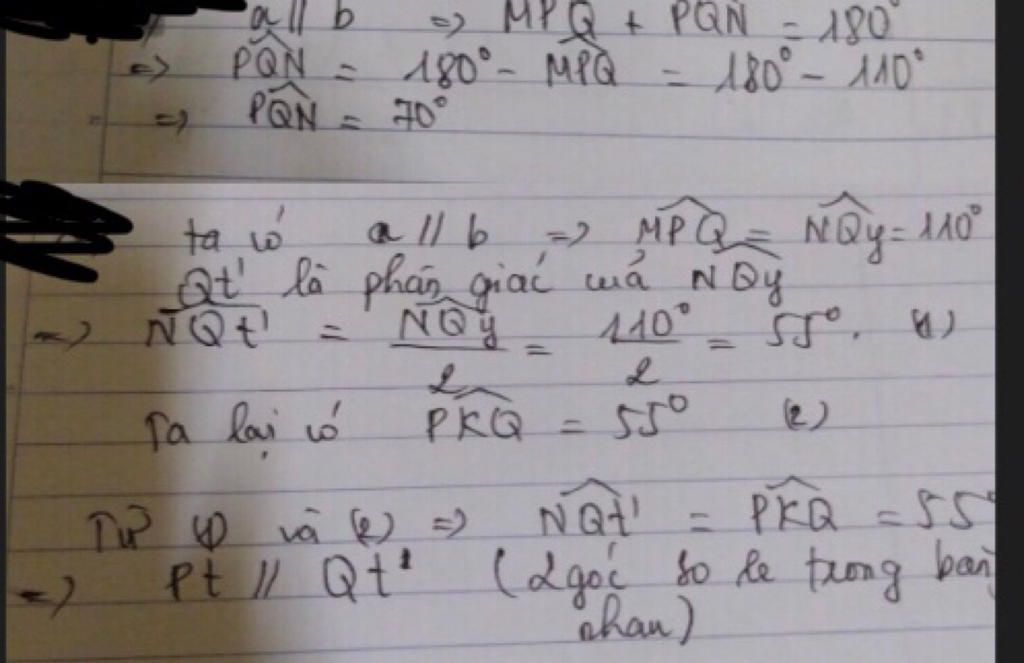 a // b => MPQ + PQN = 180°
=> PQN = 180° - MPQ = 180° - 110°
=> PQN = 70°
ta có a // b => MPQ = NQy = 110°
Qt' là phân giác của NQy
=> NQt' = NQy/2 = 110°/2 = 55°. (1)
Ta lại có PKQ = 55° (2)
Từ (1) và (2) => NQt' = PKQ = 55°
=> Pt // Qt' (2 góc so le trong bằng
nhau)